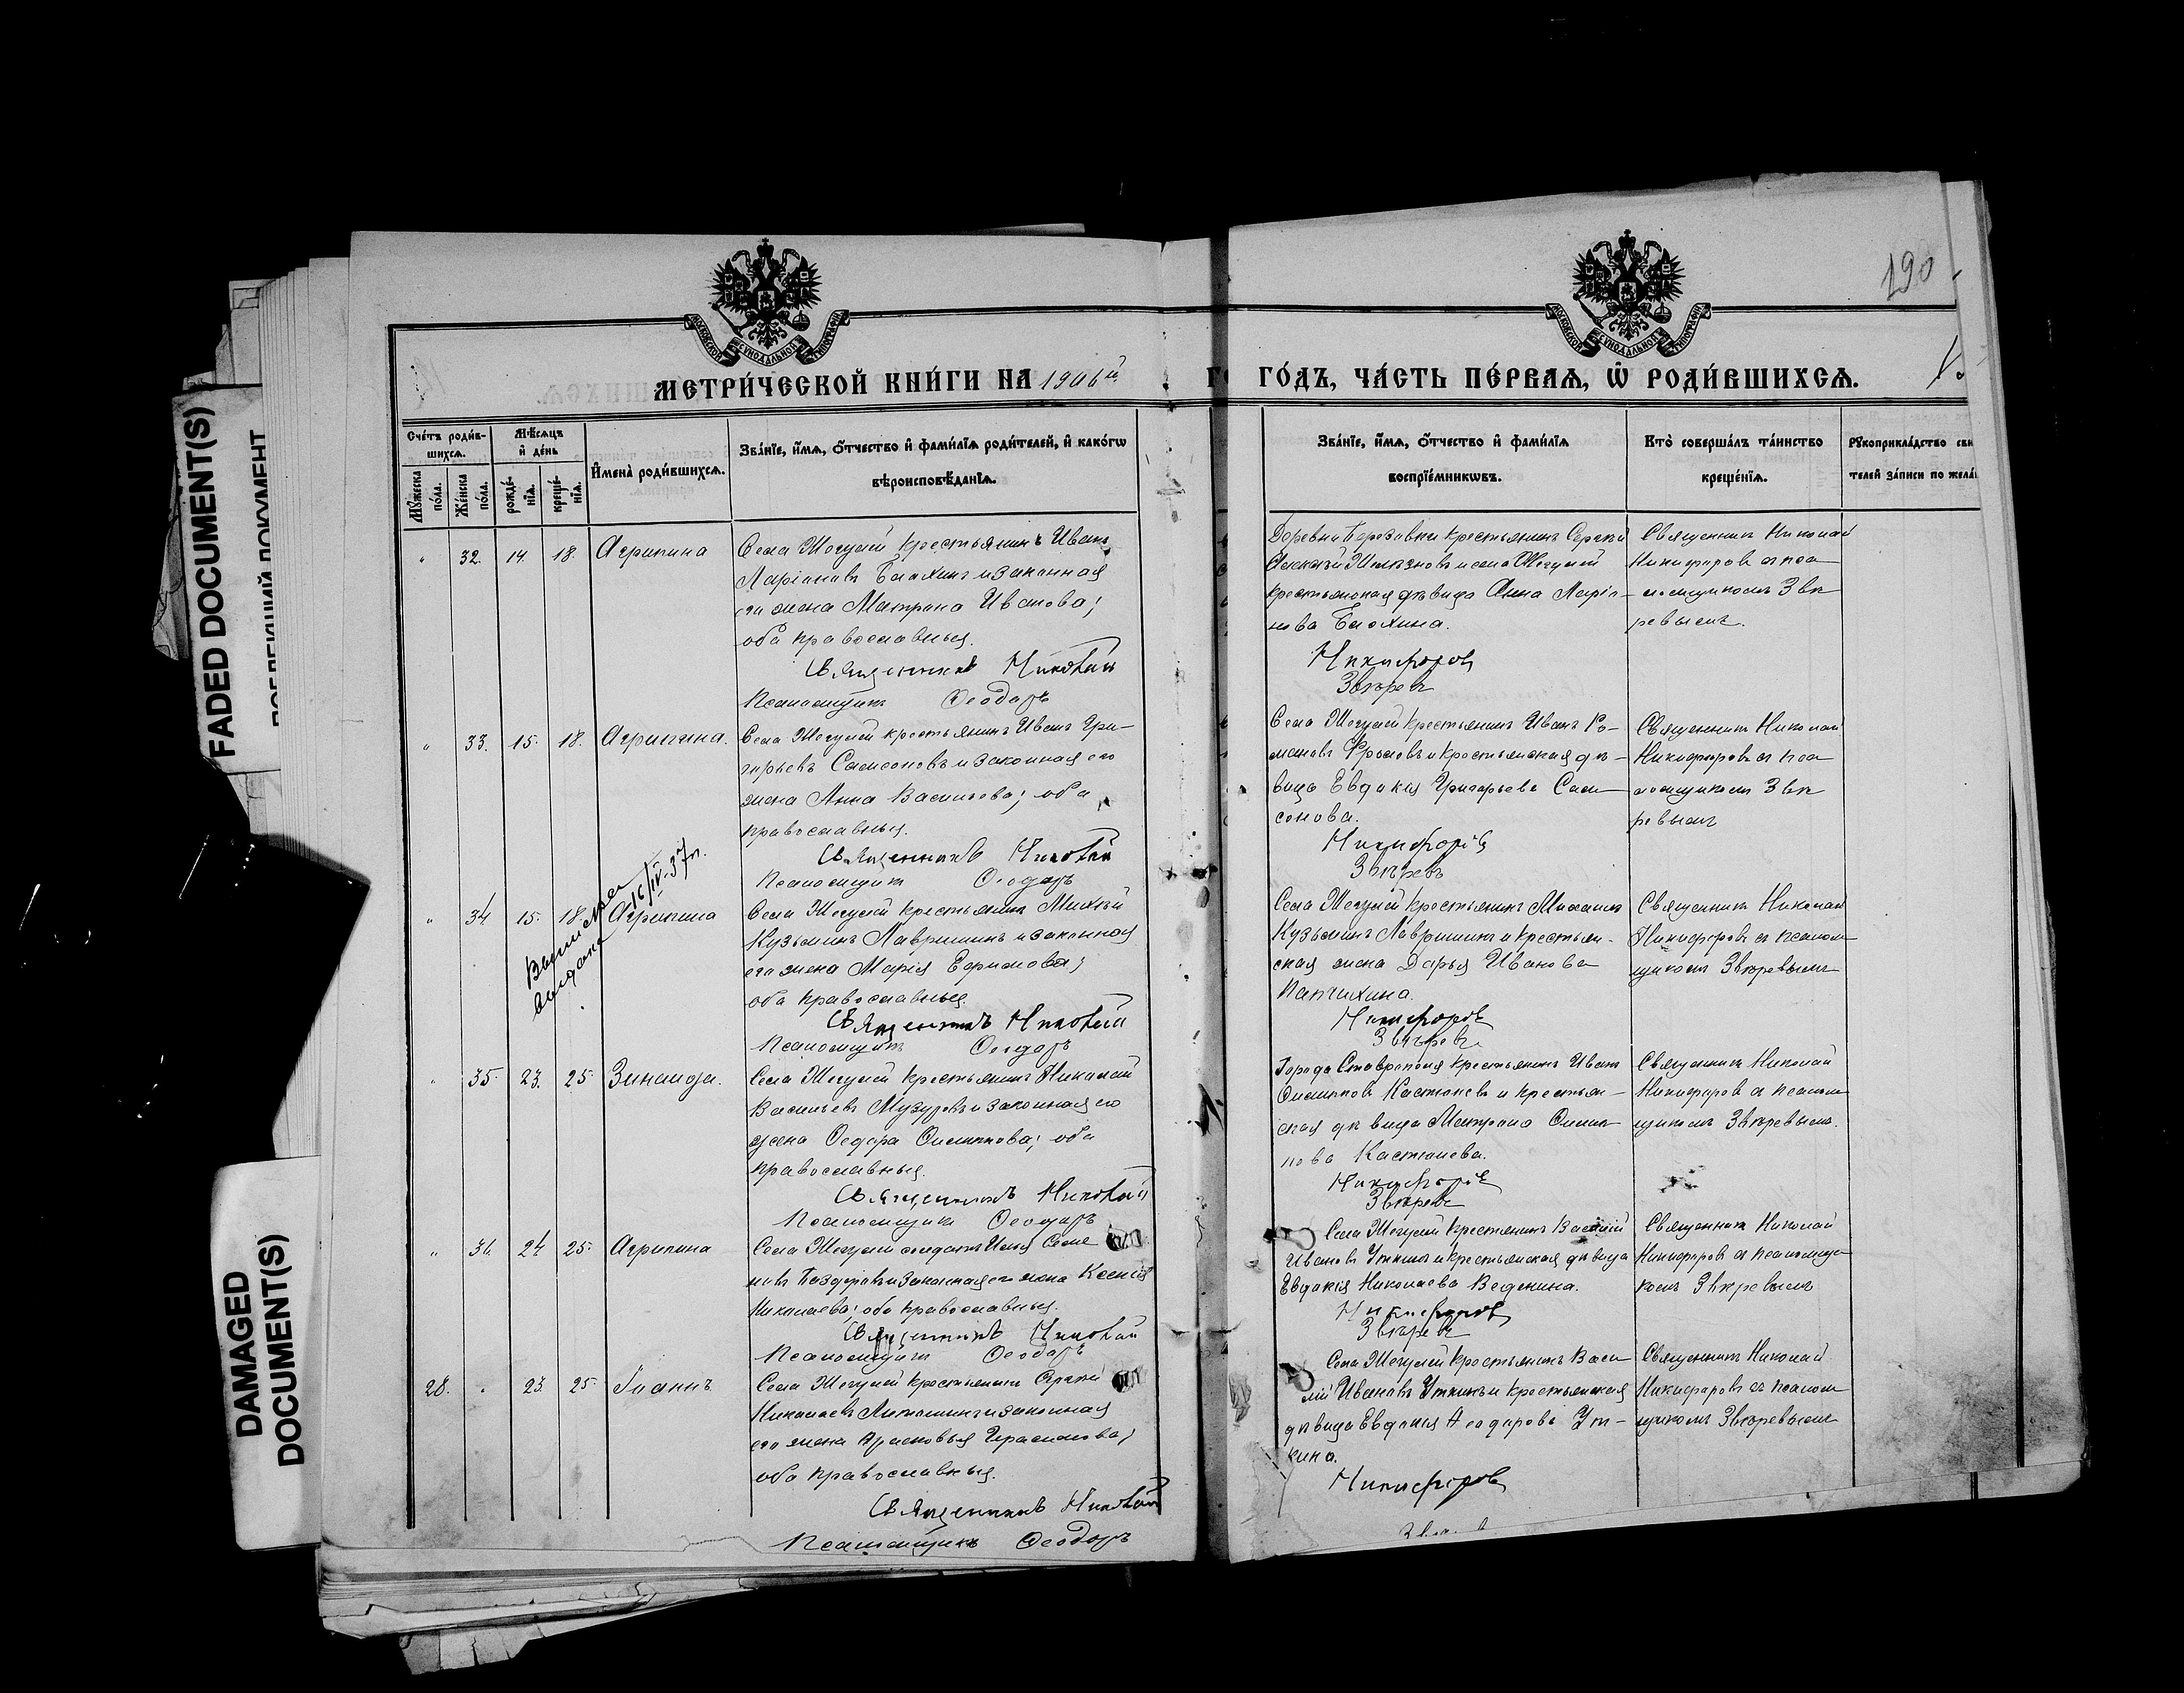 FADED DOCUMENT(S)
DAMAGED
DOCUMENT(S)
190
МОСКОВСКОЙ СѴНОДАЛЬНОЙ ТИПОГРАФІИ
МОСКОВСКОЙ СѴНОДАЛЬНОЙ ТИПОГРАФІИ
МЕТРИ́ЧЕСКОЙ КНИ́ГИ НА 1906й
ГО́ДЪ, ЧА́СТЬ ПЕ́РВАЯ, Ѡ҆ РОДИ́ВШИХСЯ.
Сче́тъ роди́в-
шихся.
Мѣ́сяцъ
и҆ де́нь
Мꙋ́жеска
по́ла.
Же́нска
по́ла.
рожде́-
нїя.
креще́-
нїя.
И҆мена̀ роди́вшихся.
Зва́нїе, и҆́мя, ѻ҆́тчество и҆ фами́лїя роди́телей, и҆ како́гѡ
вѣроисповѣ́данїя.
Зва́нїе, и҆́мя, ѻ҆́тчество и҆ фами́лїя
воспрїе́мникѡвъ.
Кто̀ соверша́лъ та́инство
креще́нїя.
Рꙋкоприкла́дство сви
телей за́писи по жела
32. 14. 18. Агрипина
Села Жегулей крестьянинъ Иванъ
Ларіоновъ Блохинъ и законная
его жена Матрона Иванова;
оба православныя.
Священникъ Николай
Псаломщикъ Ѳеодоръ
Деревни Березовки крестьянинъ Сергей
и села Жегулей
крестьянская дѣвица Анна Ларіо-
нова Блохина.
Никифоровъ
Звѣревъ
Священникъ Николай
Никифоровъ съ пса
ломщикомъ Звѣ
ревымъ.
33. 15. 18. Агрипина.
Села Жегулей крестьянинъ Иванъ Гри-
горьевъ Самсоновъ и законная его
жена Анна Васильева; оба
православныя.
Священникъ Николай
Псаломщикъ Ѳеодоръ
Села Жегулей крестьянинъ Иванъ Ро-
мановъ Фроловъ и крестьянская дѣ-
вица Евдокія Григорьева Сам-
сонова.
Никифоровъ
Звѣревъ
Священникъ Николай
Никифоровъ съ пса
ломщикомъ Звѣ
ревымъ
выдана 16/IV-37 г.
34 15. 18 Агрипина
Села Жегулей крестьянинъ
Кузьминъ Лавришинъ и законная
его жена Марія Ефимова;
оба православныя.
Священникъ Николай
Псаломщикъ Ѳеодоръ
Села Жегулей крестьянинъ Михаилъ
Кузьминъ Лавришинъ и крестьян-
ская жена Дарья Иванова
Никифоровъ
Звѣревъ
Священникъ Николай
Никифоровъ съ псалом
щикомъ Звѣревымъ
35. 23. 25. Зинаида.
Села Жегулей крестьянинъ Николай
Васильевъ Музуровъ и законная его
жена Ѳедора; оба
православныя.
Священникъ Николай
Псаломщикъ Ѳеодоръ
Города Ставрополя крестьянинъ Иванъ
и крестьян-
ская дѣвица Матрона
Никифоровъ
Звѣревъ
Священникъ Николай
Никифоровъ съ псалом
щикомъ Звѣревымъ.
36. 24 25. Агрипина
Села Жегулей солдатъ Илья
и законная его жена Ксенія
Николаева; оба православныя.
Священникъ Николай
Псаломщикъ Ѳеодоръ
Села Жегулей крестьянинъ Василій
Ивановъ Уткинъ и крестьянская дѣвица
Евдокія Николаева Веденина.
Никифоровъ
Звѣревъ
Священникъ Николай
Никифоровъ съ псаломщи-
комъ Звѣревымъ
28. 23. 25. Іоаннъ
Села Жегулей крестьянинъ Сергей
Николаевъ и законная
его жена Прасковья Герасимова;
оба православныя.
Священникъ Николай
Псаломщикъ Ѳеодоръ
Села Жегулей крестьянинъ Васи
лій Ивановъ Уткинъ и крестьянская
дѣвица Евдокія Ѳеодорова Ут-
кина.
Никифоровъ
Священникъ Николай
Никифоровъ съ псалом
щикомъ Звѣревымъ